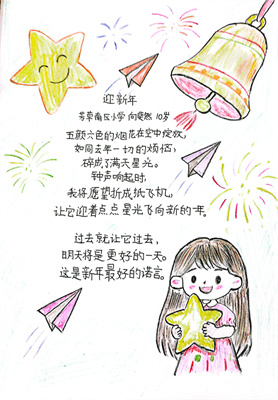 迎新年
芳草南区小学 向奕然 10岁
五颜六色的烟花在空中绽放,
如同去年一切的烦恼,
碎成了满天星光。
钟声响起时,
我将愿望折成纸飞机,
让它迎着点点星光飞向新的一年。
过去就让它过去,
明天将是更好的一天。
这是新年最好的诺言。